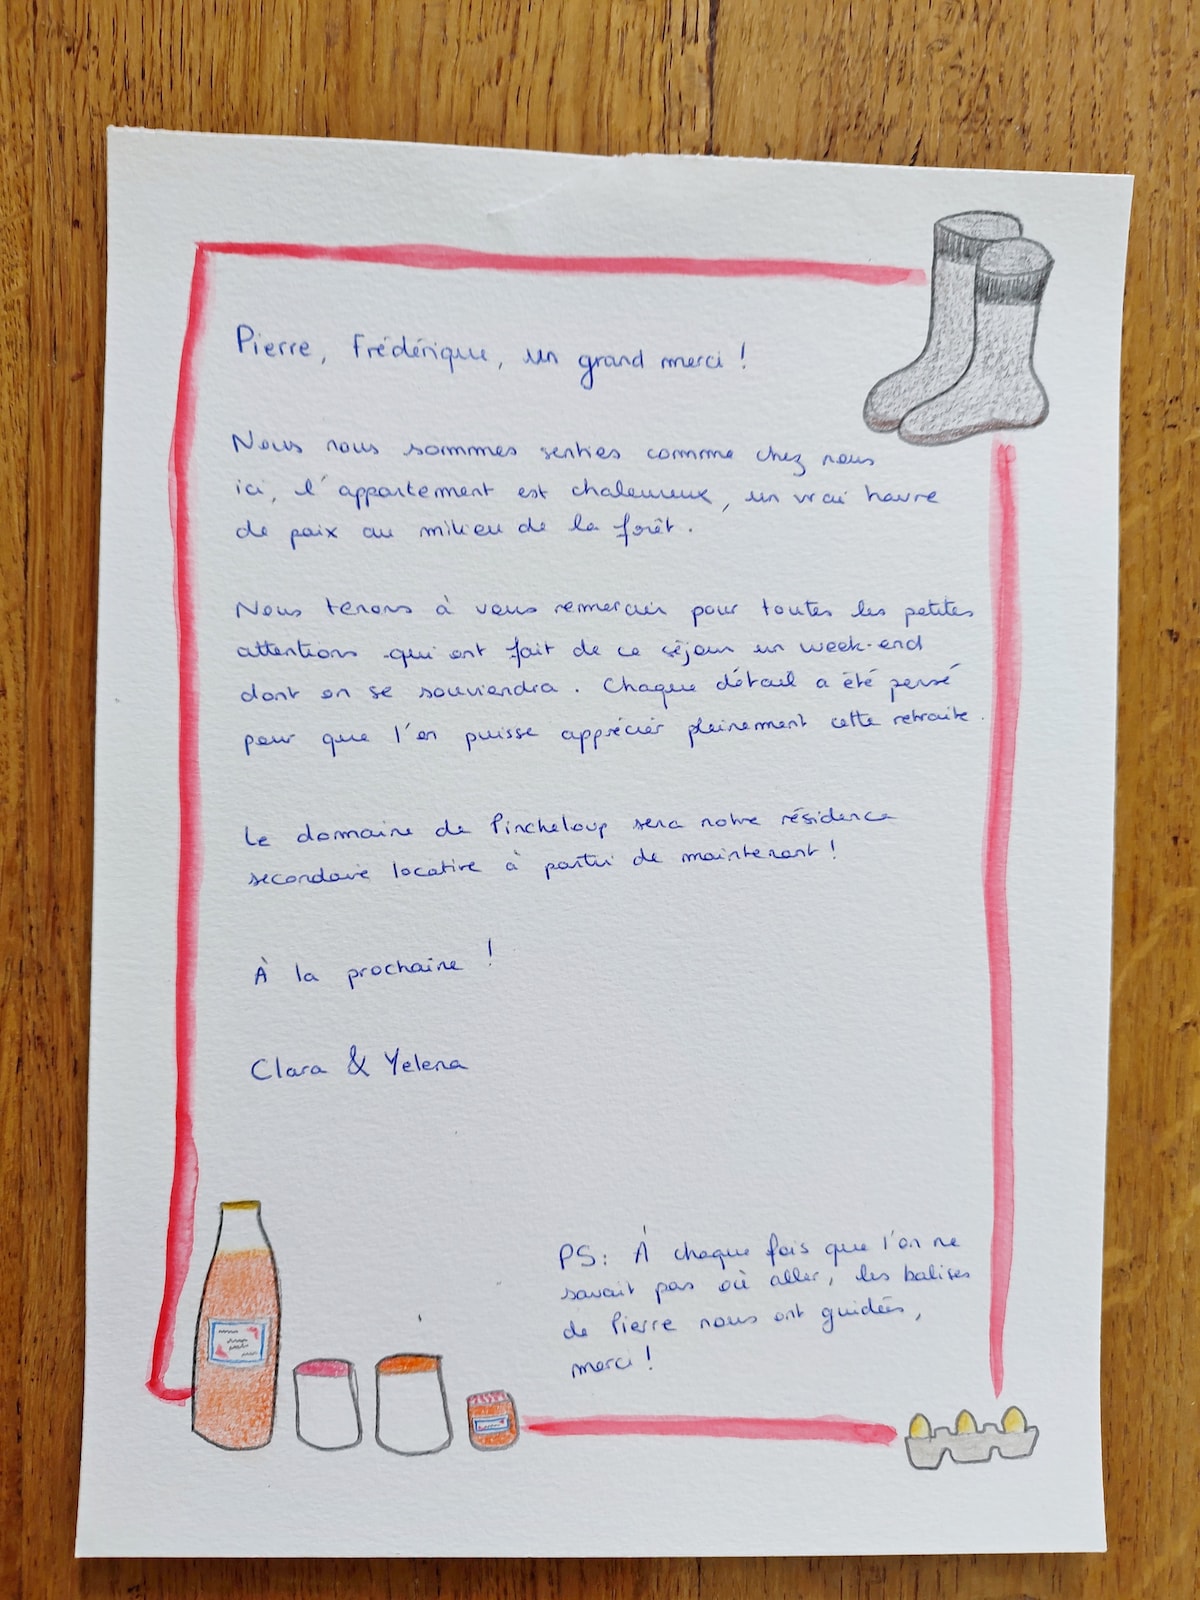 Pierre, Frédérique, un grand merci !
Nous nous sommes senties comme chez nous
ici, l'appartement est chaleureux, un vrai havre
de paix au milieu de la forêt.
Nous tenons à vous remercier pour toutes les petites
attentions qui ont fait de ce séjour un week-end
dont on se souviendra. Chaque détail a été pensé
pour que l'on puisse apprécier pleinement cette retraite.
Le domaine de Pincheloup sera notre résidence
secondaire locative à partir de maintenant !
À la prochaine !
Clara & Yelena
PS: À chaque fois que l'on ne
savait pas où aller, les balises
de Pierre nous ont guidées,
merci !